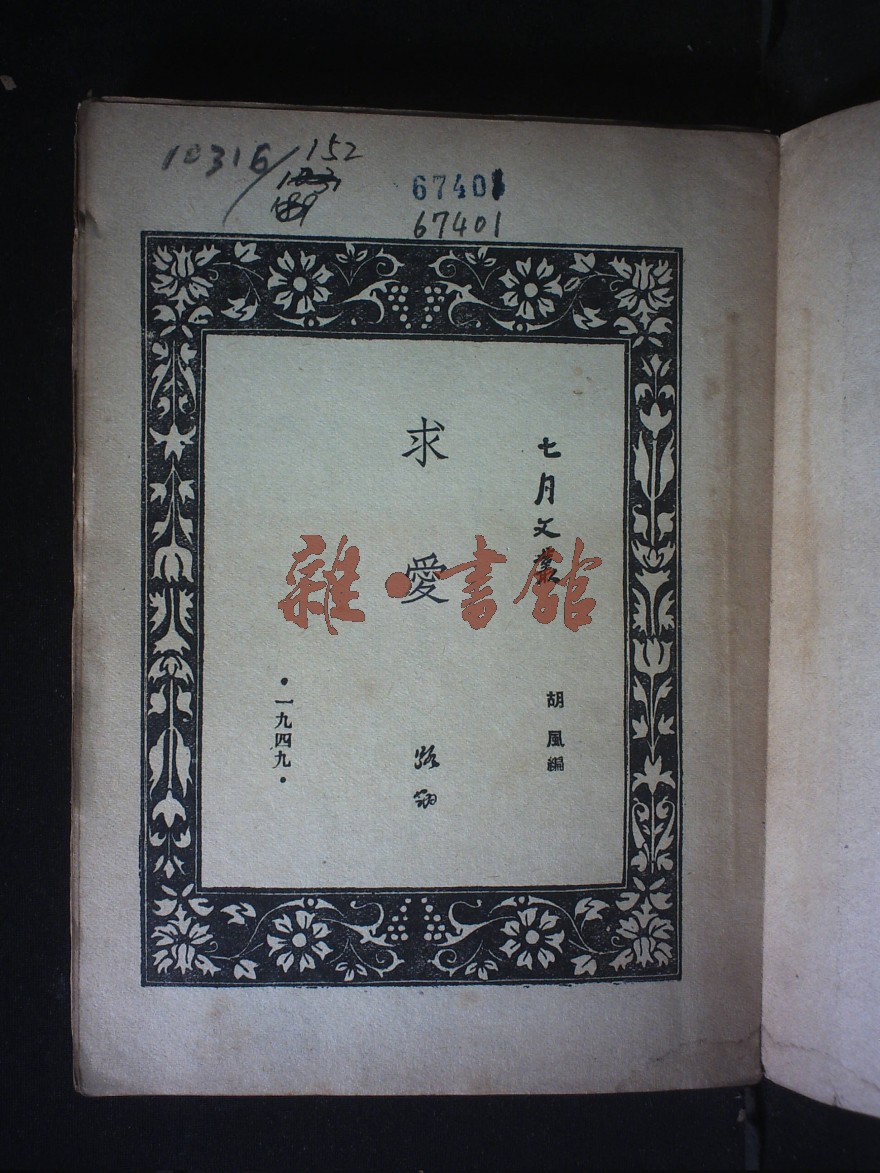 10316/152
67401
67401
七月文叢
胡風編
求愛
路翎
·一九四九·
雜·書館